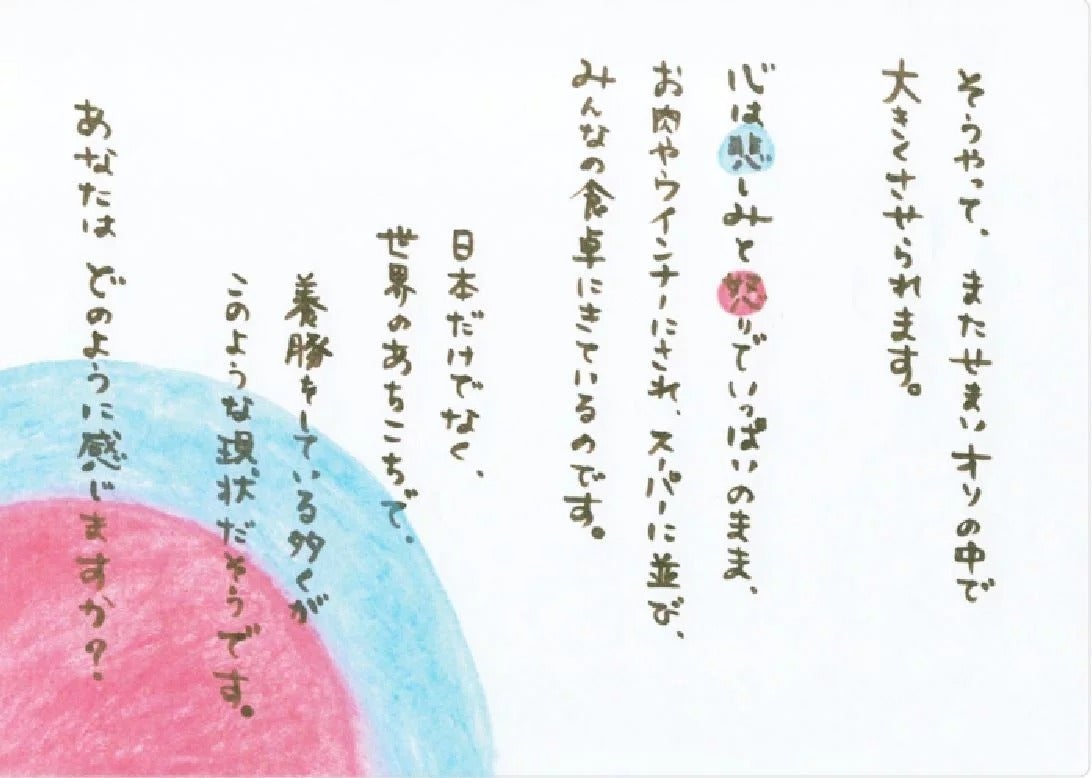 そうやって、またせまいオリの中で
大きくさせられます。
心は悲しみと怒りでいっぱいのまま、
お肉やウインナーにされ、スーパーに並び、
みんなの食卓にきているのです。
日本だけでなく、
世界のあちこちで、
養豚をしている多くが
このような現状だそうです。
あなたは どのように感じますか?